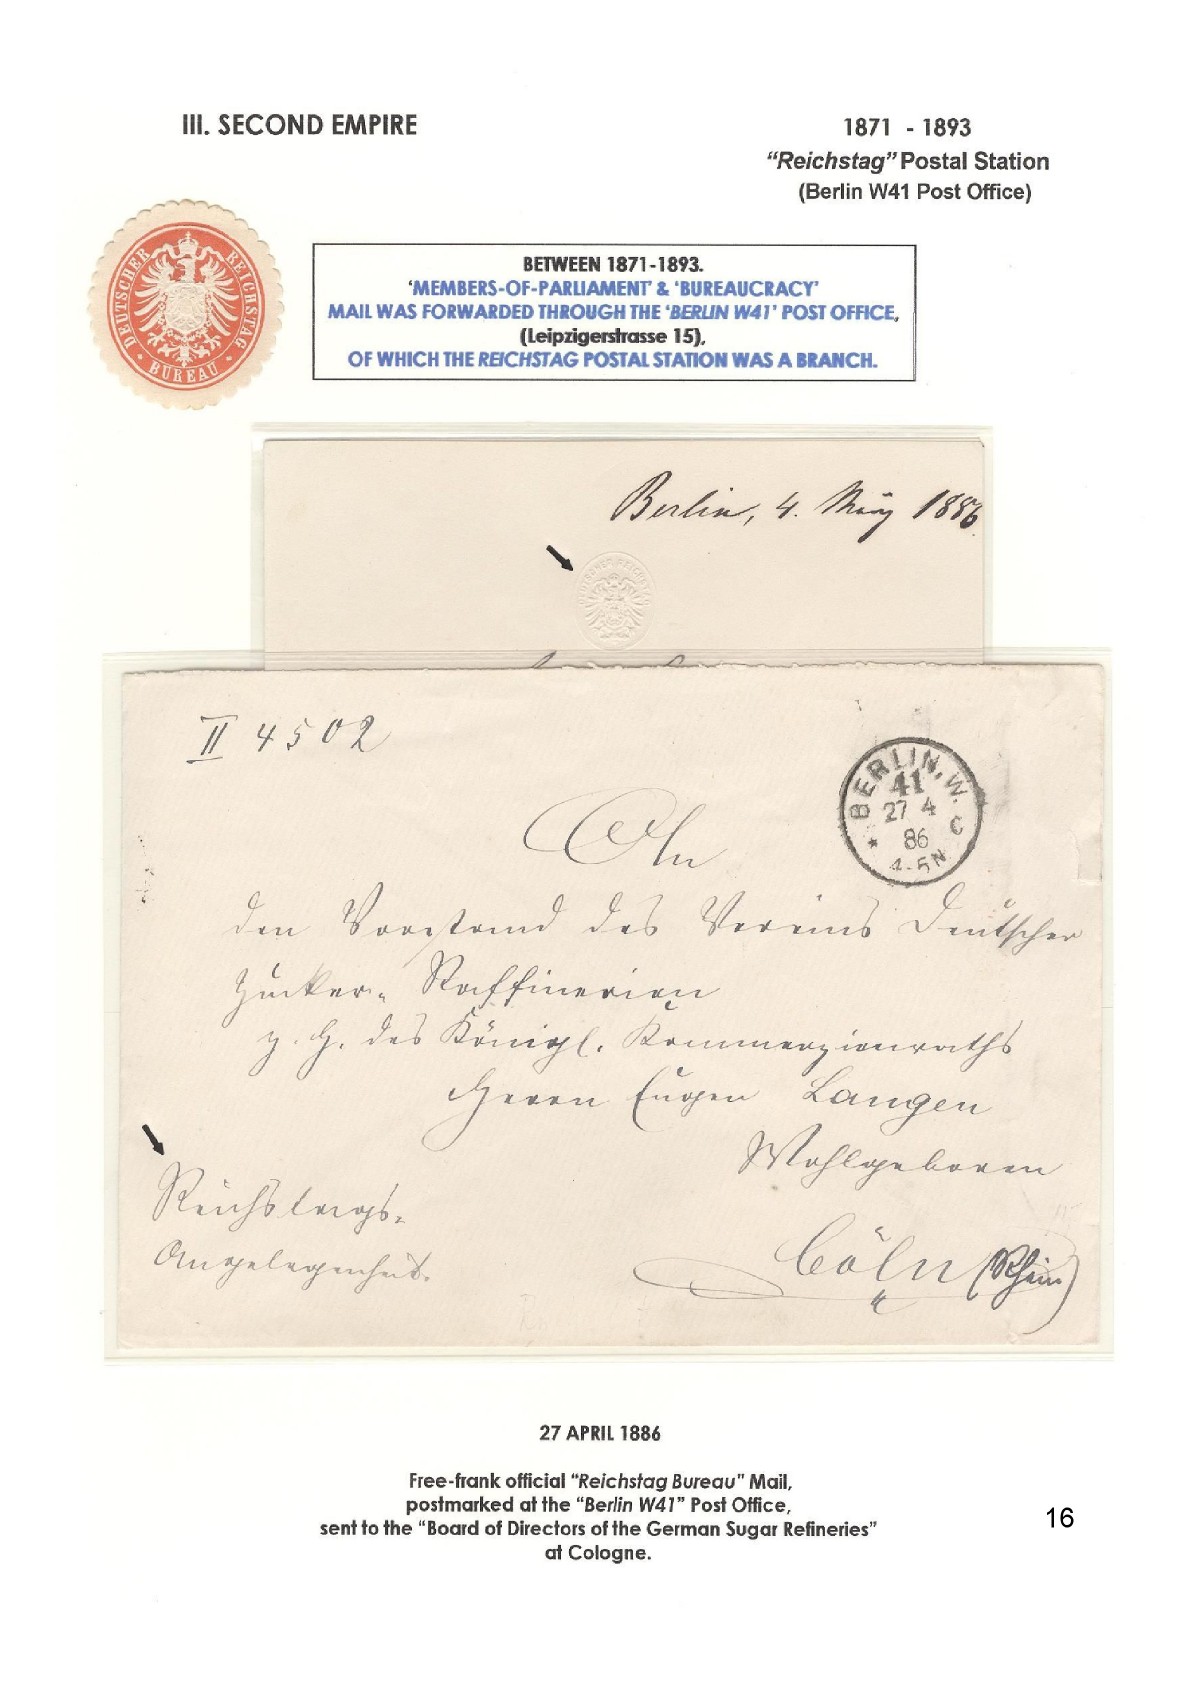 III. SECOND EMPIRE
1871 - 1893
“Reichstag” Postal Station
(Berlin W41 Post Office)
DEUTSCHER REICHSTAG
BUREAU
BETWEEN 1871-1893.
‘MEMBERS-OF-PARLIAMENT’ & ‘BUREAUCRACY’
MAIL WAS FORWARDED THROUGH THE ‘BERLIN W41’ POST OFFICE,
(Leipzigerstrasse 15),
OF WHICH THE REICHSTAG POSTAL STATION WAS A BRANCH.
Berlin, 4. März 1886
DEUTSCHER REICHSTAG
II 4502
BERLIN, W.
41
27 4
86
* C
4-5N
An
den Vorstand des Vereins Deutscher
Zucker-Raffinerien
z. H. des Königl. Kommerzienraths
Herrn Eugen Langen
Wohlgeboren
Reichstags-
Angelegenheit.
Cöln (Rhein)
27 APRIL 1886
Free-frank official “Reichstag Bureau” Mail,
postmarked at the “Berlin W41” Post Office,
sent to the “Board of Directors of the German Sugar Refineries”
at Cologne.
16